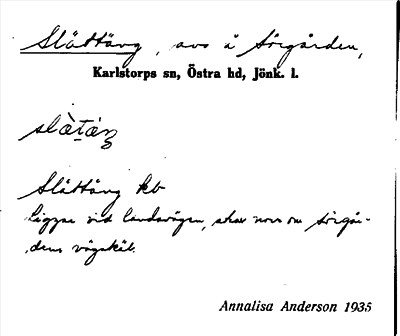 Slättäng, avs å Sörgården,
Karlstorps sn, Östra hd, Jönk. l.
slàtáŋ
Slättäng kb
Ligger vid landsvägen, strax norr om Sörgår-
dens vägskäl.
Annalisa Anderson 1935